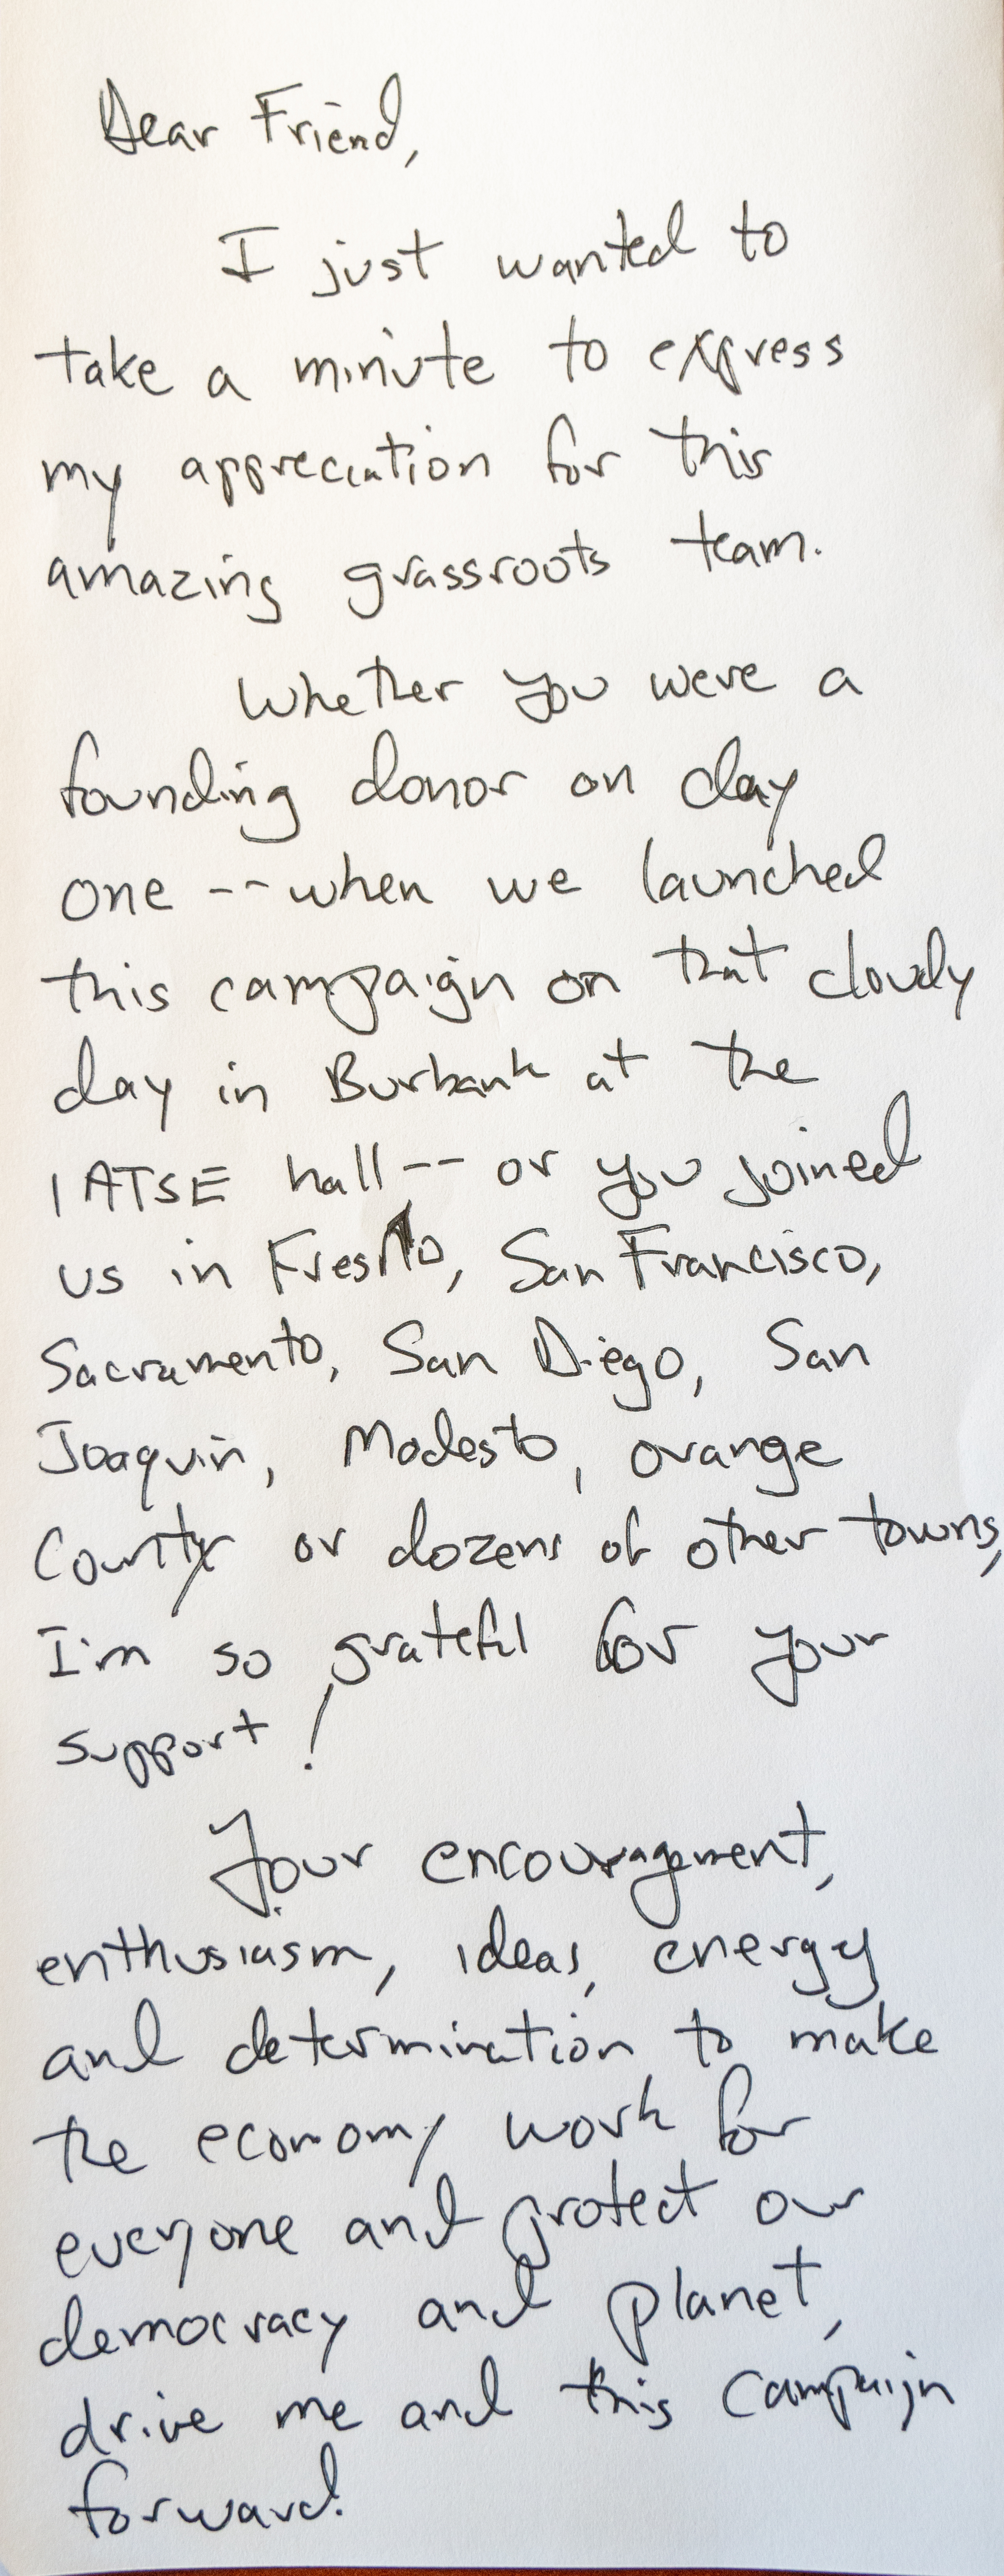 Dear Friend,
I just wanted to
take a minute to express
my appreciation for this
amazing grassroots team.
Whether you were a
founding donor on day
one -- when we launched
this campaign on that cloudy
day in Burbank at the
IATSE hall -- or you joined
us in Fresno, San Francisco,
Sacramento, San Diego, San
Joaquin, Modesto, orange
County or dozens of other towns,
I'm so grateful for your
support!
Your encouragement,
enthusiasm, ideas, energy
and determination to make
the economy work for
everyone and protect our
democracy and planet,
drive me and this campaign
forward.